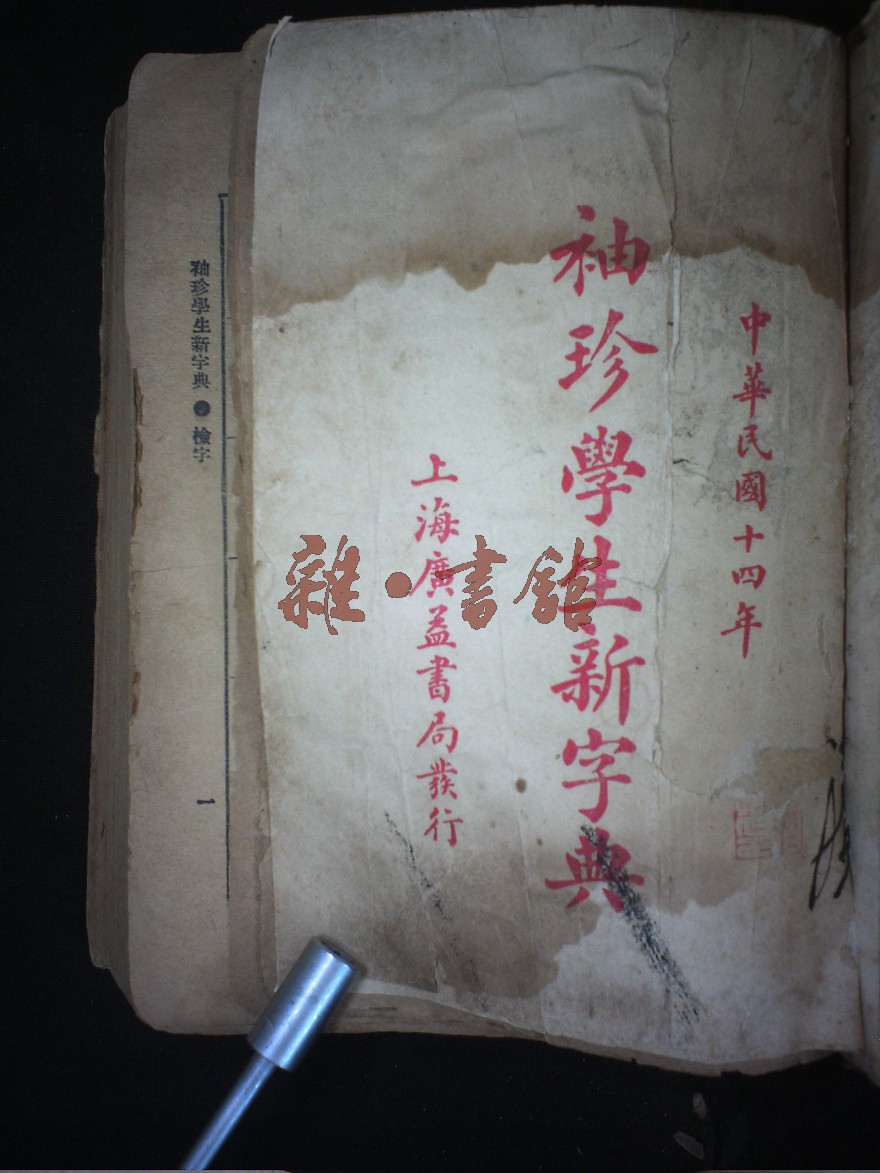 中華民國十四年
袖珍學生新字典
上海廣益書局發行
雜·書館
袖珍學生新字典 檢字
一